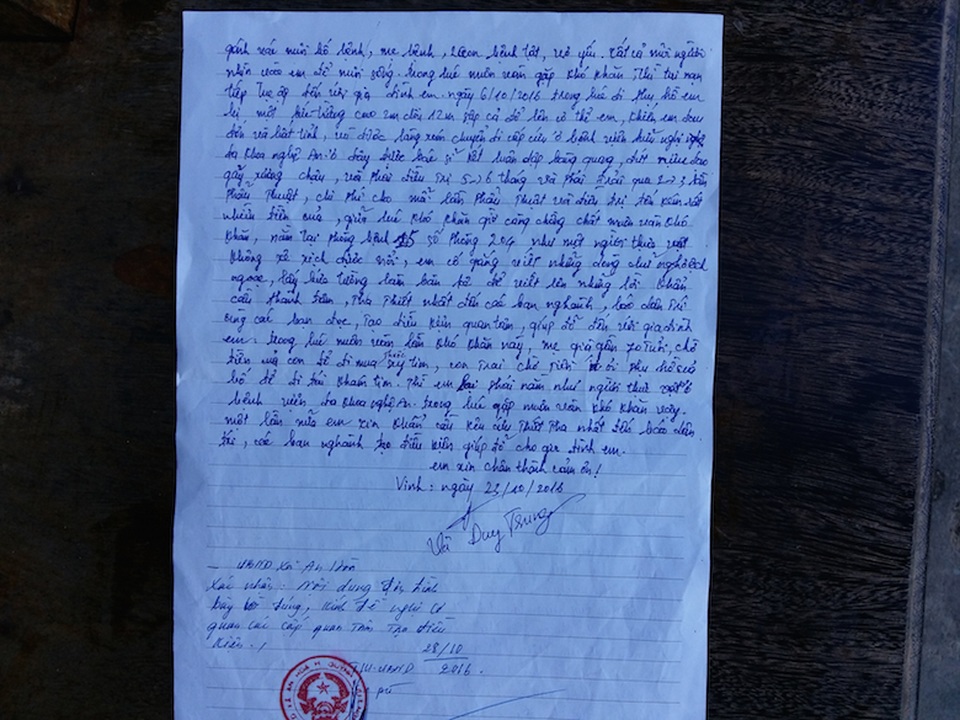 gánh vác nuôi bố bệnh, mẹ bệnh, con bệnh tật, vợ yếu. tất cả mọi người
nhìn vào em để mưu sống. trong lúc muôn vàn gặp khó khăn thì tai nạn
lại ập đến với gia đình em. ngày 6/10/2016 trong lúc đi phụ hồ em
bị một bức tường cao 2m dài 12m sập cả đổ lên cơ thể em, khiến em đau
đớn và bất tỉnh, và được làng xóm chuyển đi cấp cứu ở bệnh viện hữu nghị
đa khoa nghệ An. ở đây được bác sĩ kết luận dập bàng quang, đứt niệu đạo
gãy xương chậu, và phải điều trị 5-6 tháng và phải trải qua 2-3 lần
phẫu thuật, chi phí cho mỗi lần phẫu thuật và điều trị tốn kém rất
nhiều tiền của, giữa lúc khó khăn giờ càng chồng chất muôn vàn khó
khăn, nằm tại phòng bệnh số phòng 204 như một người thực vật
không xê xịch được nổi, em cố gắng viết những dòng chữ nghệch
ngoạc, lấy bức tường làm bàn tả để viết lên những lời khẩn
cầu thành tâm, tha thiết nhất đến các ban nghành, báo dân trí
cùng các bạn đọc, tạo điều kiện quan tâm, giúp đỡ đến với gia đình
em. trong lúc muôn vàn lần khó khăn này, mẹ già gần 70 tuổi, chờ
tiền của con để đi mua thuốc suy tim, con trai chờ tiền phụ hồ của
bố để đi tái khám tim. Thì em lại phải nằm như người thực vật ở
bệnh viện đa khoa nghệ An. trong lúc gặp muôn vàn khó khăn này.
một lần nữa em xin khẩn cầu kêu cứu thiết tha nhất đến báo dân
trí, các ban nghành tạo điều kiện giúp đỡ cho gia đình em.
em xin chân thành cảm ơn!
Vinh: ngày 23/10/2016
Duy Trung
- UBND xã An Hòa
Xác nhận: Nội dung
bày là đúng, kính đề nghị cơ
quan các cấp quan tâm tạo điều
kiện./
28/10
2016.